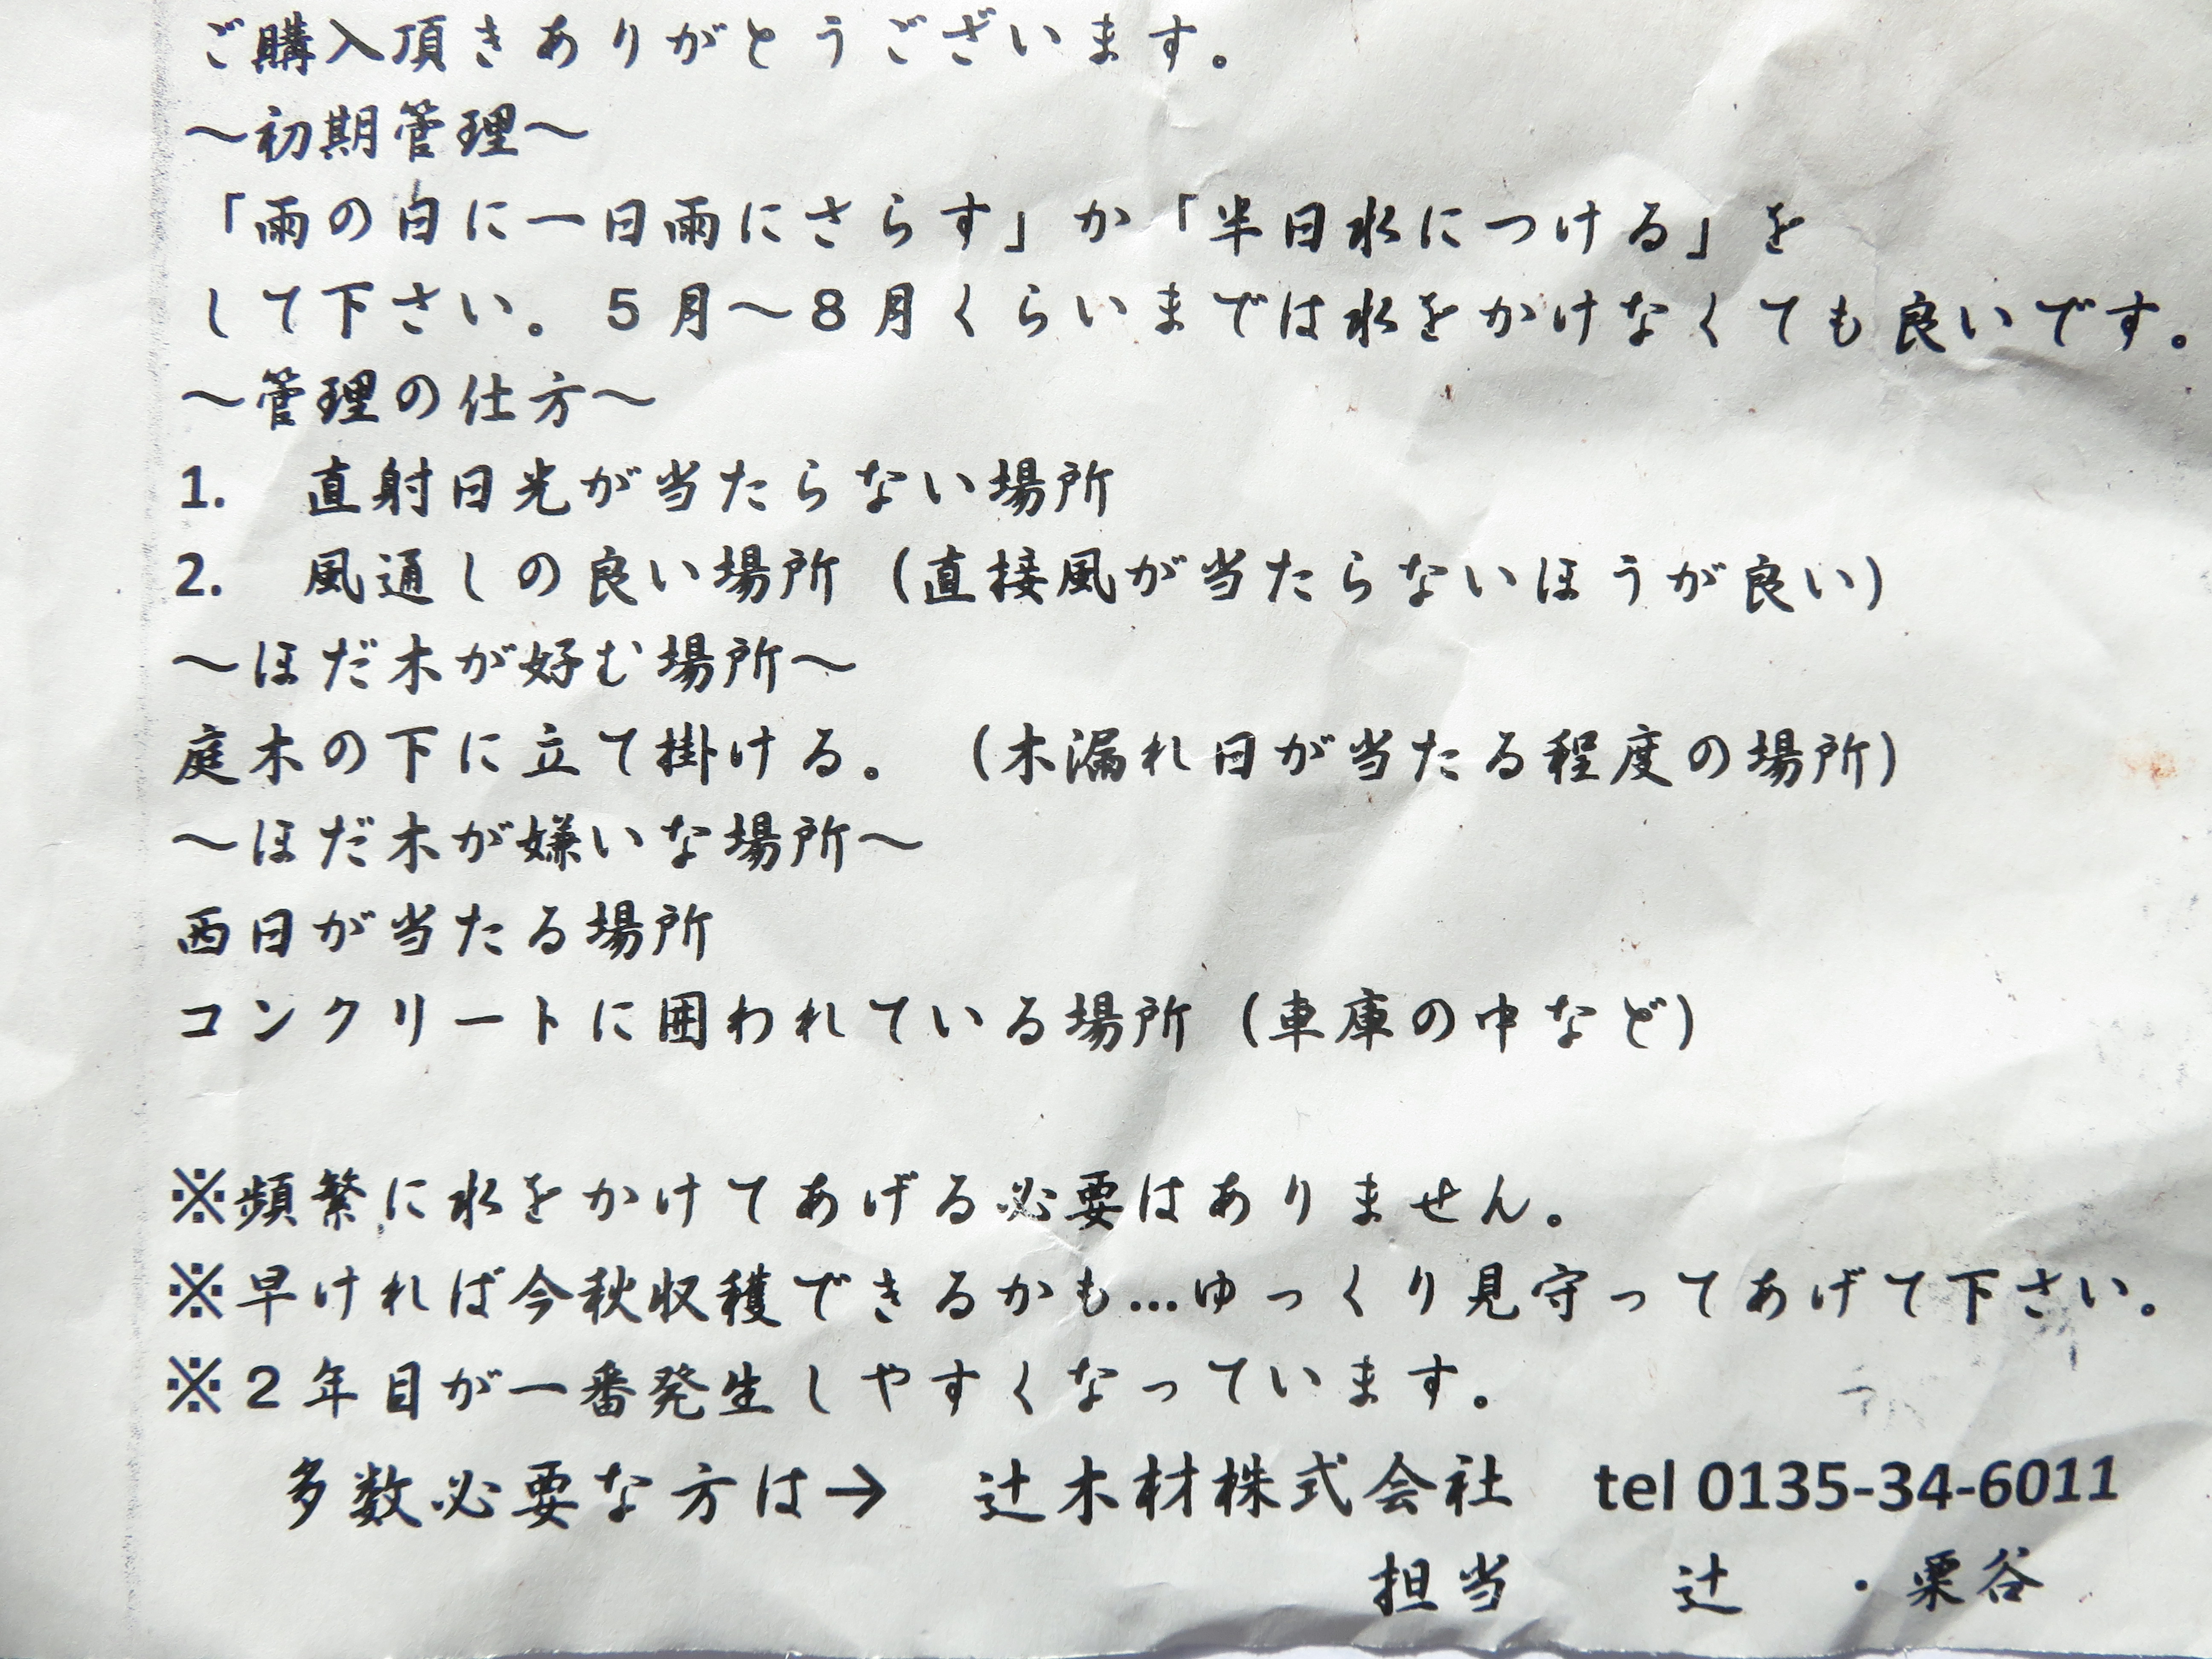 ご購入頂きありがとうございます。
～初期管理～
「雨の日に一日雨にさらす」か「半日水につける」を
して下さい。5月～8月くらいまでは水をかけなくても良いです。
～管理の仕方～
1.　直射日光が当たらない場所
2.　風通しの良い場所（直接風が当たらないほうが良い）
～ほだ木が好む場所～
庭木の下に立て掛ける。（木漏れ日が当たる程度の場所）
～ほだ木が嫌いな場所～
西日が当たる場所
コンクリートに囲われている場所（車庫の中など）
※頻繁に水をかけてあげる必要はありません。
※早ければ今秋収穫できるかも…ゆっくり見守ってあげて下さい。
※2年目が一番発生しやすくなっています。
多数必要な方は→　辻木材株式会社　tel 0135-34-6011
担当　辻　・栗谷